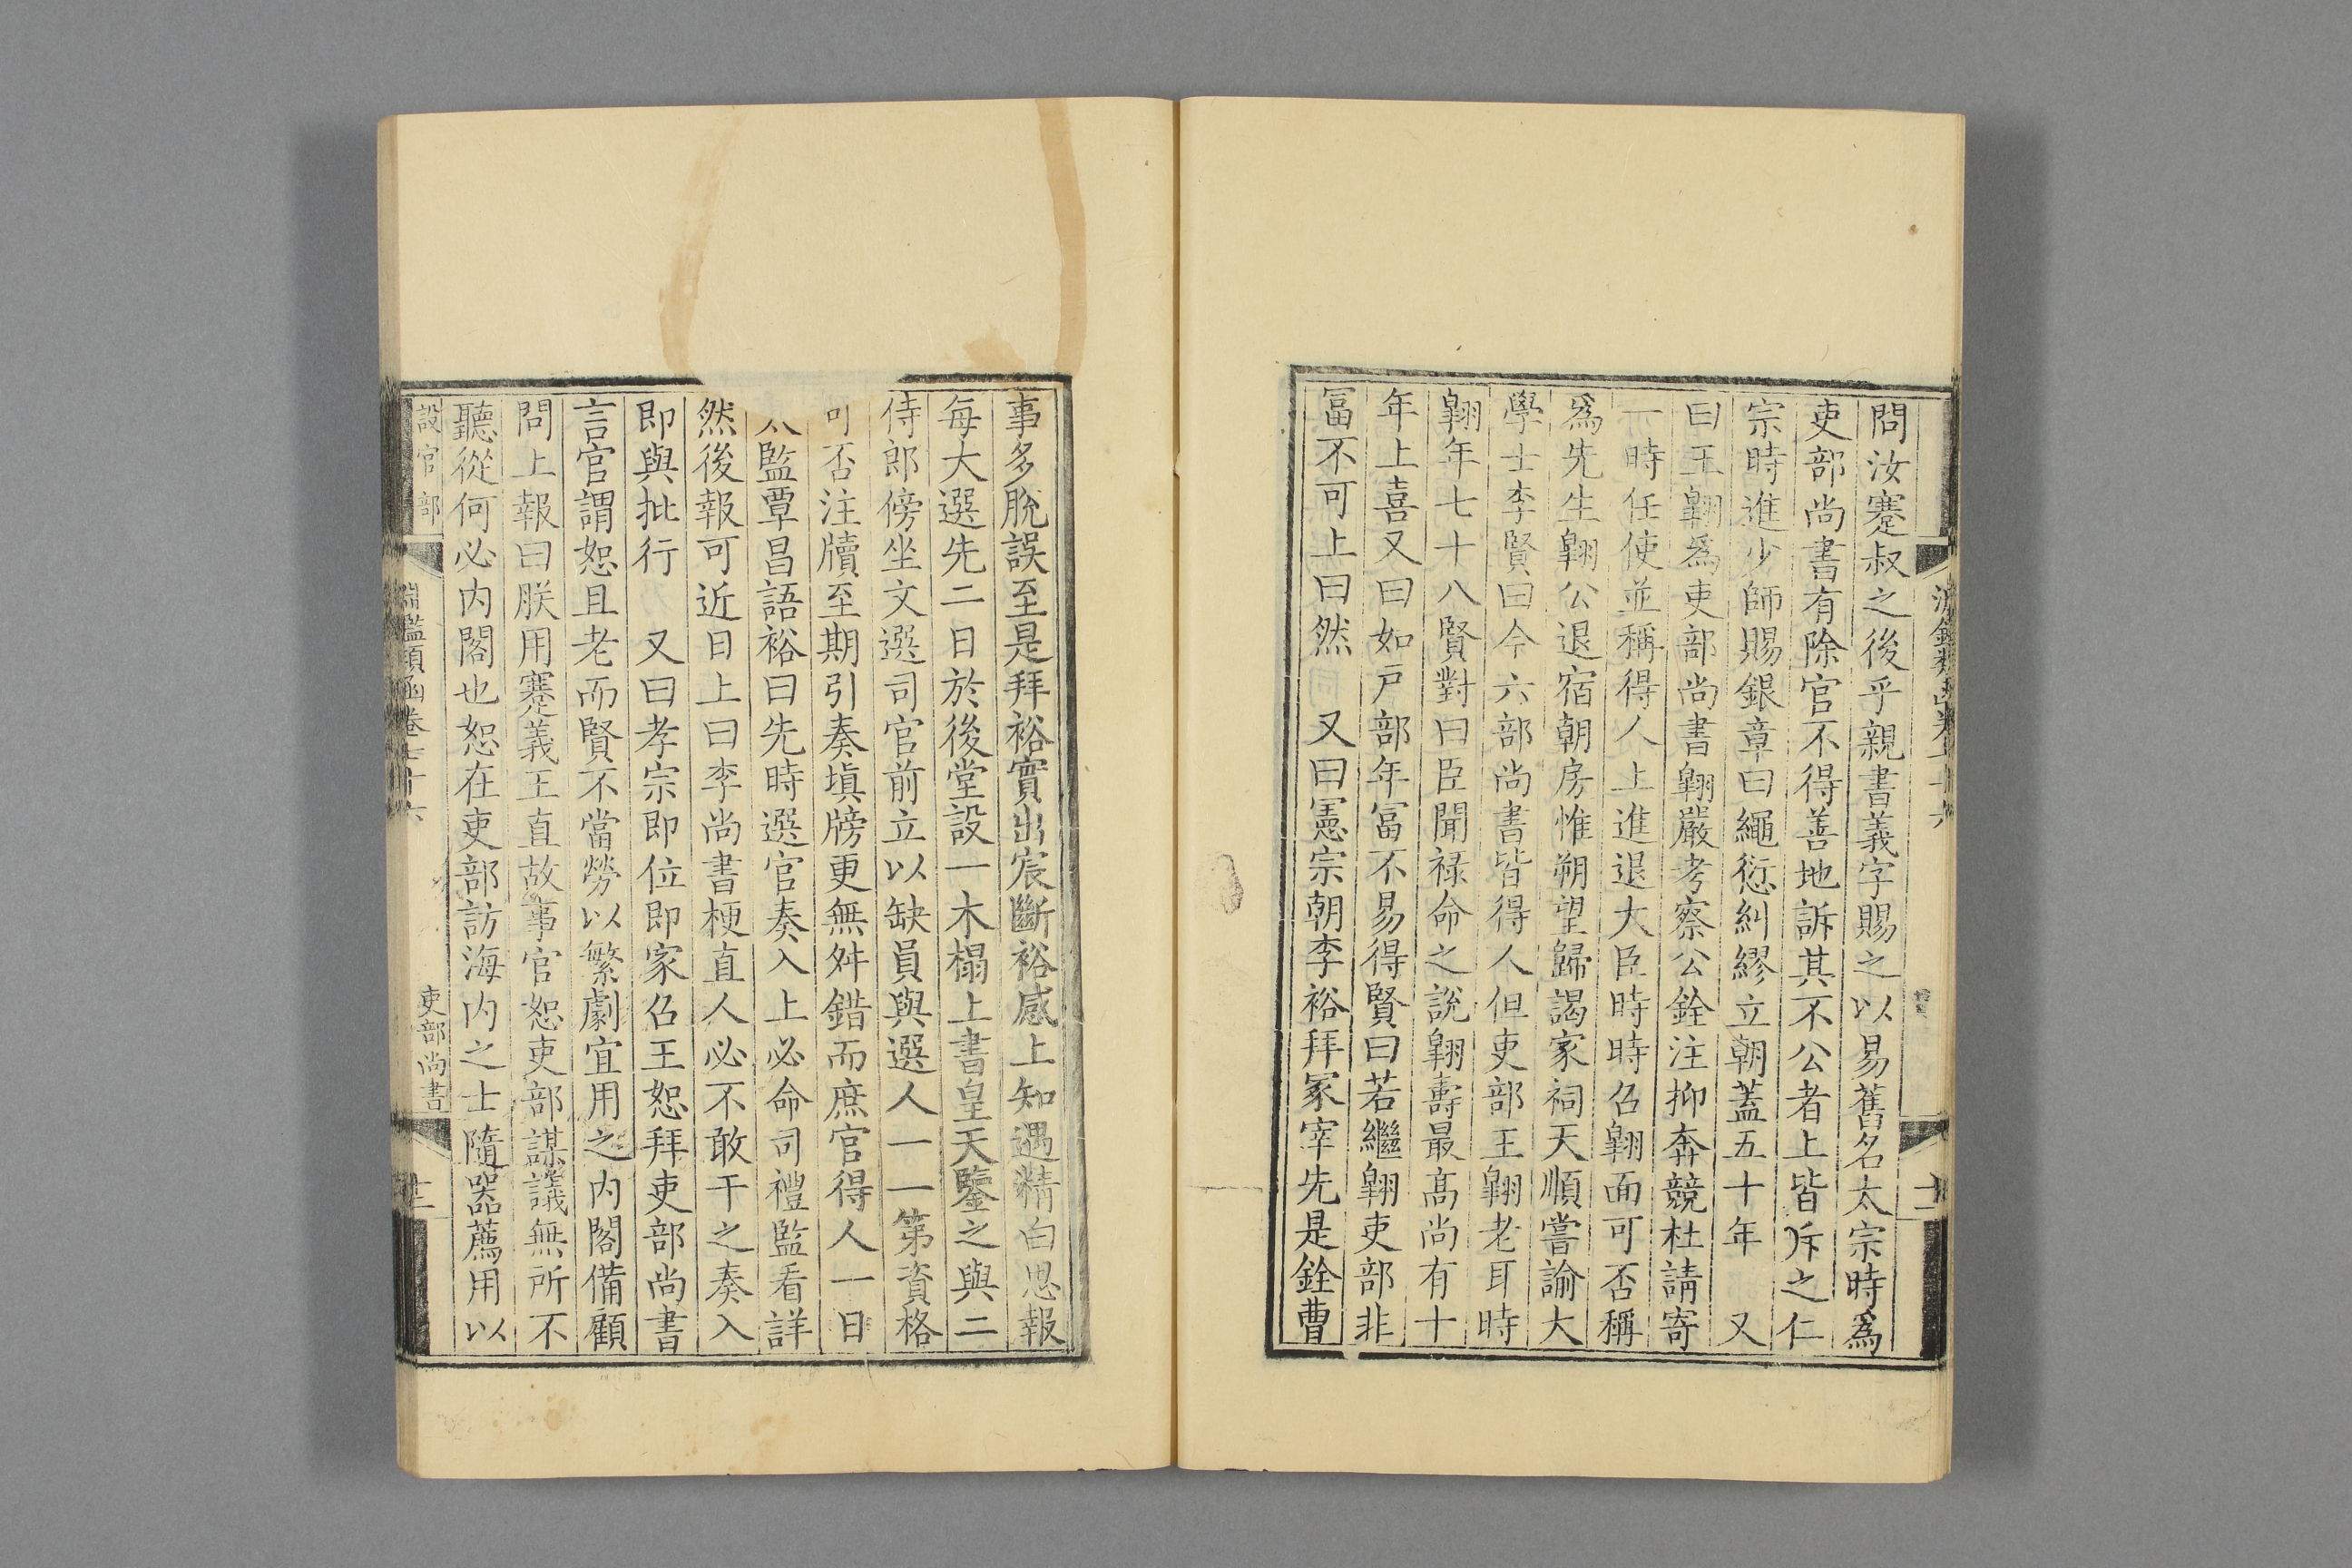 問汝蹇叔之後乎親書義字賜之以易舊名太宗時爲
吏部尚書有除官不得善地訴其不公者上皆斥之仁
宗時進少師賜銀章曰繩愆糾繆立朝蓋五十年　又
曰王翺爲吏部尚書翺嚴考察公銓注抑奔競杜請寄
一時任使並稱得人上進退大臣時時召翺面可否稱
爲先生翺公退宿朝房惟朔望歸謁家祠天順嘗諭大
學士李賢曰今六部尚書皆得人但吏部王翺老耳時
翺年七十八賢對曰臣聞禄命之說翺壽最高尚有十
年上喜又曰如戸部年冨不易得賢曰若繼翺吏部非
冨不可上曰然　又曰憲宗朝李裕拜冢宰先是銓曹
十一
事多脫誤至是拜裕實出宸斷裕感上知遇精白思報
每大選先二日於後堂設一木榻上書皇天鑒之與二
侍郎傍坐文選司官前立以缺員與選人一一第資格
可否注牘至期引奏塡牓更無舛錯而庶官得人一日
太監覃昌語裕曰先時選官奏入上必命司禮監看詳
然後報可近日上曰李尚書梗直人必不敢干之奏入
即與批行　又曰孝宗即位即家召王恕拜吏部尚書
言官謂恕且老而賢不當勞以繁劇宜用之内閣備顧
問上報曰朕用蹇義王直故事官恕吏部謀議無所不
聽從何必内閣也恕在吏部訪海内之士隨器薦用以
設官部
淵鑑類函卷七十六
吏部尚書